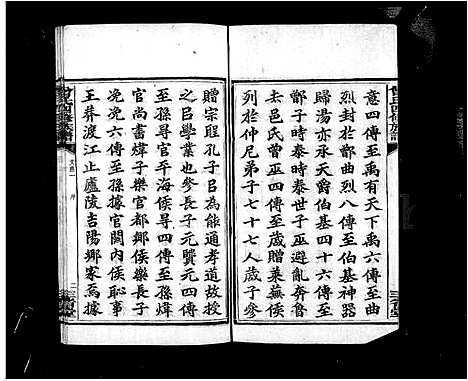 曾氏四修族譜
意四傳至禹有天下禹六傳至曲
烈封於鄫曲烈八傳至伯基神器
歸湯亦承天爵伯基四十六傳至
鄫子時泰時泰世子巫避亂奔魯
去邑氏曾巫四傳至葴贈萊
列於仲尼弟子七十七人葴子參
三省堂
贈宗聖孔子㠯能通孝道故授
之㠯學業也參長子元賢元四傳
至孫尋官平海侯尋四傳至孫煒
官尚書煒子樂官都鄉侯樂長子
浼浼六傳至孫據官關內侯恥事
王莽渡江止廬陵吉陽鄉家焉據
曾氏四修族譜
序
二
三省堂